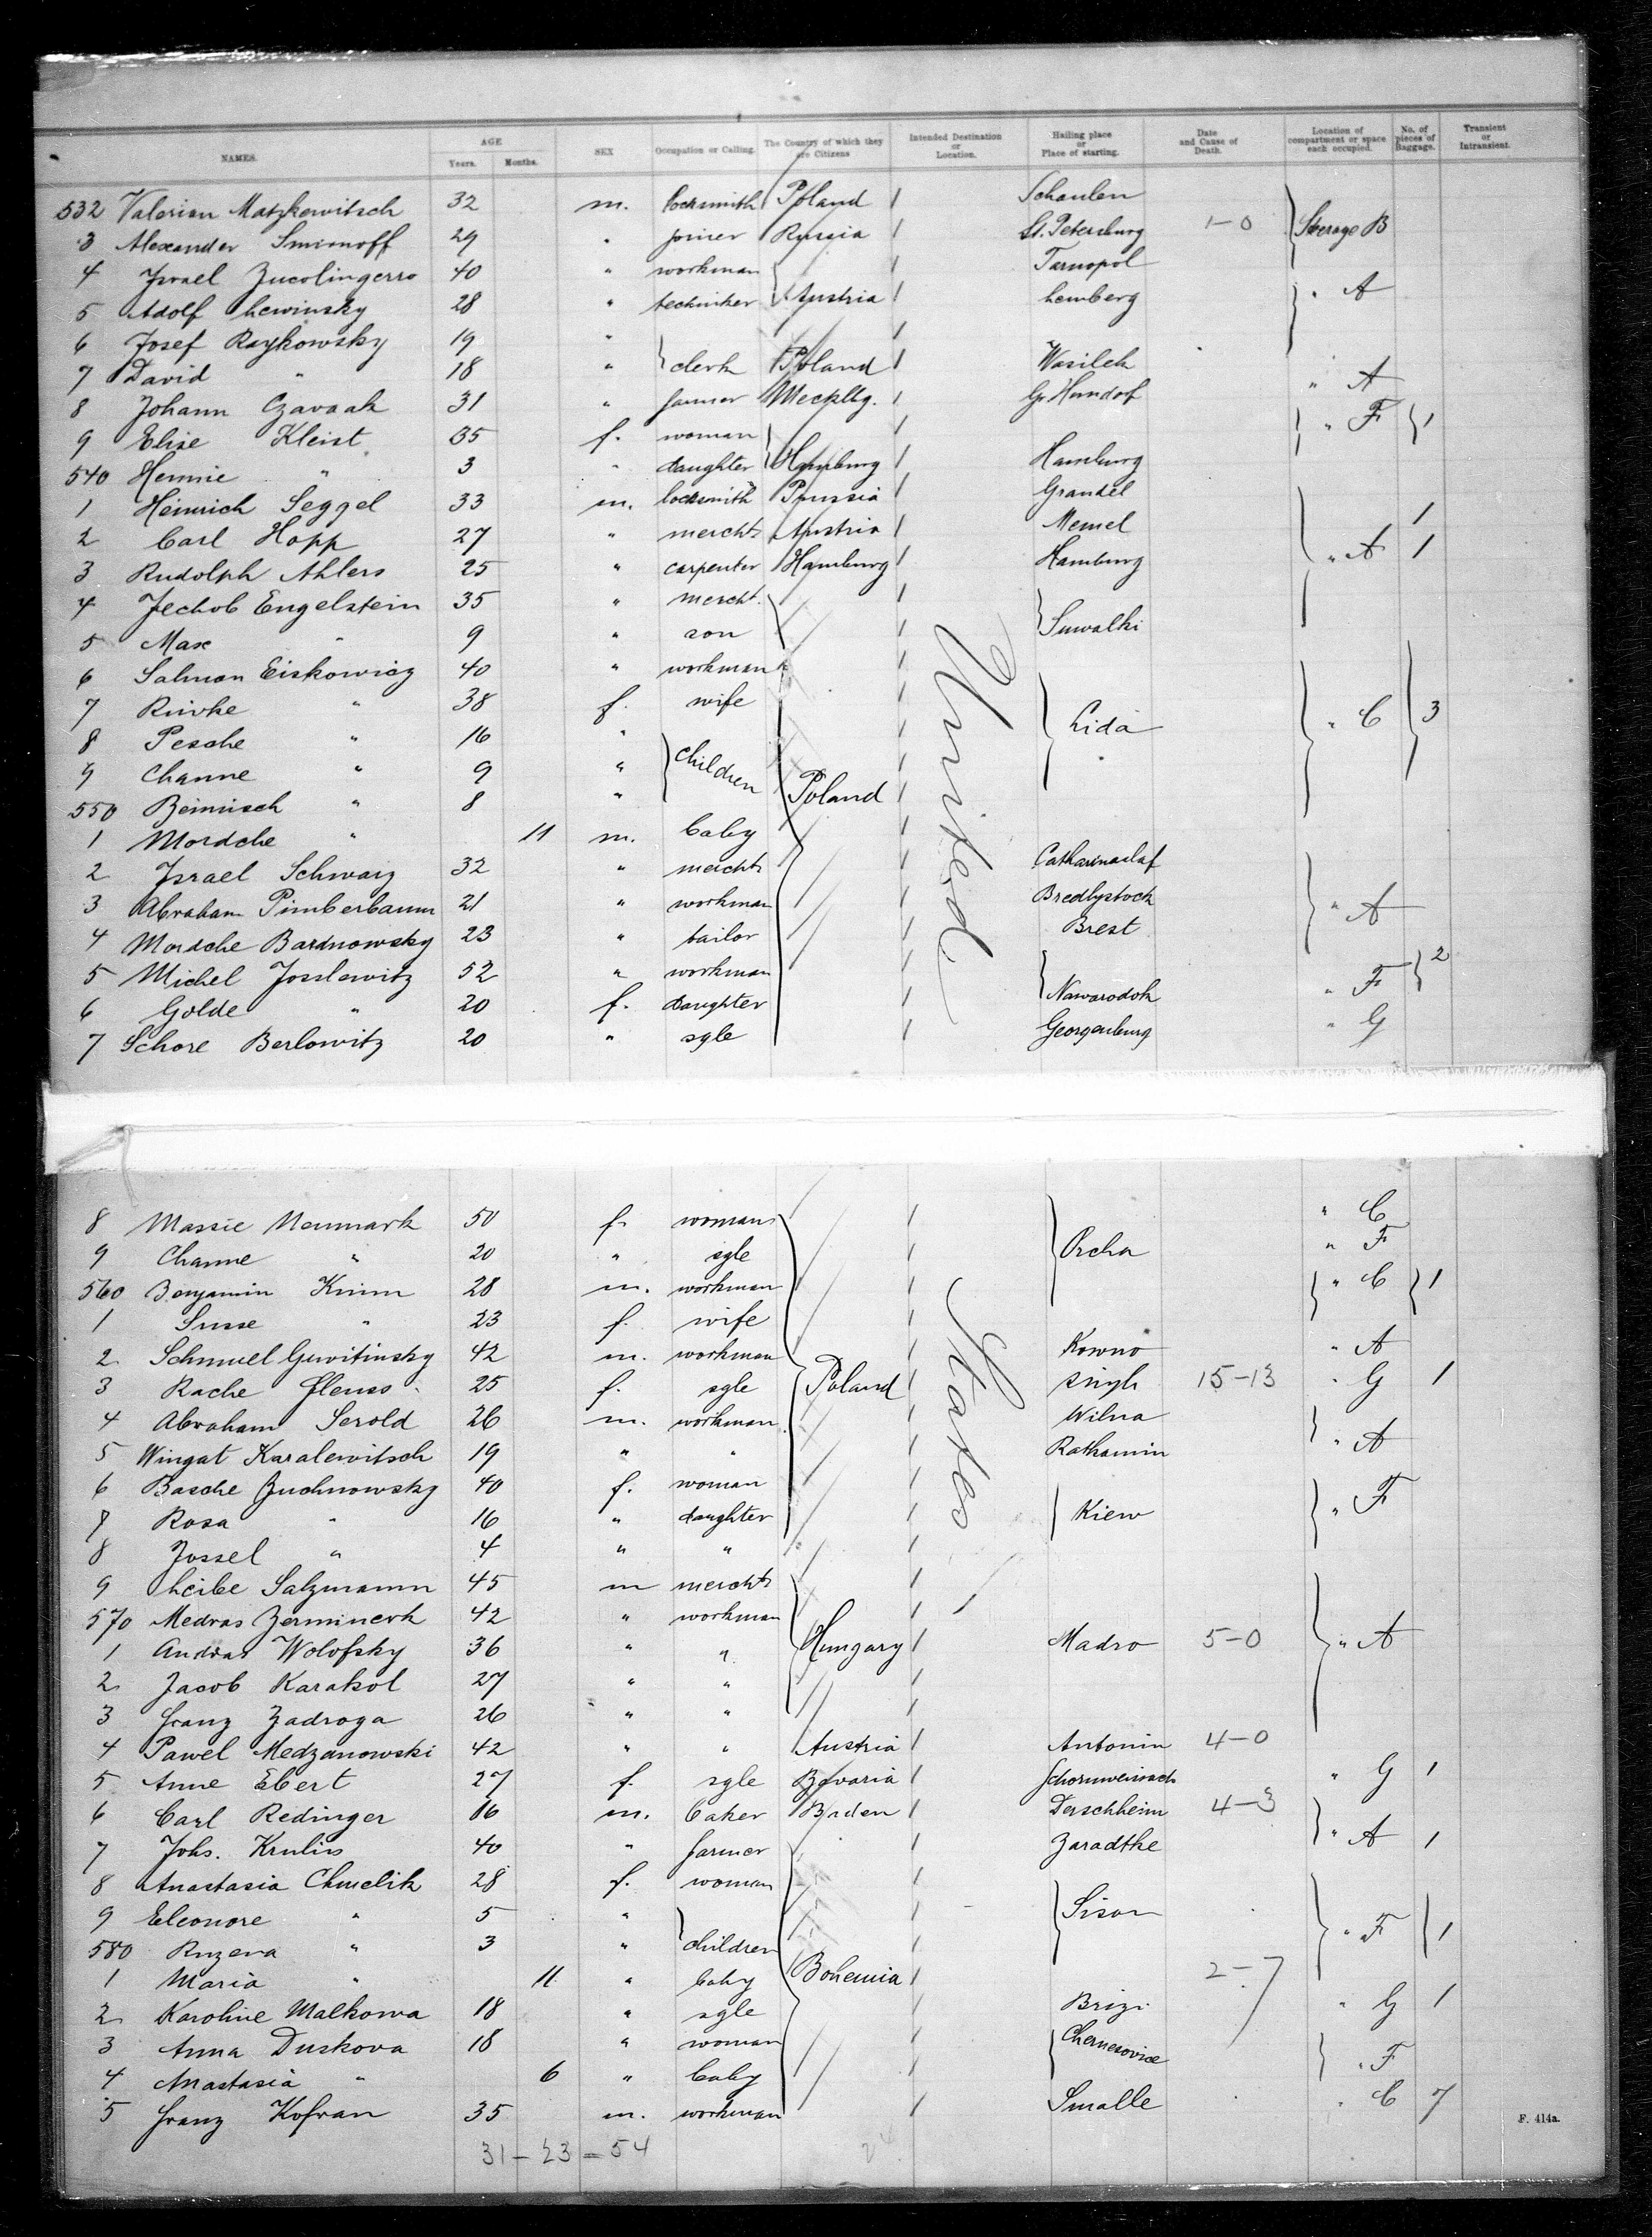 NAMES. AGE Years. Months. SEX Occupation or Calling. The Country of which they are Citizens Intended Destination or Location. Hailing place or Place of starting. Date and Cause of Death. Location of compartment or space each occupied. No. of pieces of Baggage. Transient or Intransient.
532 Valerian Matzkewitsch 32 m. locksmith Poland Schaulen
3 Alexander Smirnoff 29 " joiner Russia St. Petersburg 1-0 Sterage B
4 Israel Zucolingerro 40 " workman Tarnopol
5 Adolf Lewinsky 28 " techniker Austria Lemberg " A
6 Josef Raykowsky 19 "
7 David " 18 " clerk Poland Wasilek " A
8 Johann Czavaak 31 " farmer Mecklbg. Gr. Hundorf
9 Elise Kleist 35 f. woman " F 1
540 Hennie " 3 " daughter Hamburg Hamburg
1 Heinrich Seggel 33 m. locksmith Prussia Grandel 1
2 Carl Hopp 27 " mercht Austria Memel " A 1
3 Rudolph Ahlers 25 " carpenter Hamburg Hamburg
4 Jechob Engelstein 35 " mercht. Suwalki
5 Max " 9 " son
6 Salman Eiskowicz 40 " workman
7 Riwke " 38 f. wife Lida " C 3
8 Pesche " 16 " children
9 Channe " 9 "
550 Beinisch " 8 " Poland
1 Mordche " 11 m. baby
2 Israel Schwarz 32 " mercht Catharinaslaf
3 Abraham Pimberbaum 21 " workman Bredlystock " A
4 Mordche Bardnowsky 23 " tailor Brest
5 Michel Josslewitz 52 " workman Nawarodok " F 2
6 Golde " 20 f. daughter " G
7 Schore Berlowitz 20 " sgle Georgenburg
United
8 Massie Neumark 50 f. woman " C
9 Channe " 20 " sgle Orcha " F
560 Benjamin Krimm 28 m. workman " C 1
1 Susse " 23 f. wife
2 Schmuel Gewitinsky 42 m. workman Kowno " A
3 Rache 25 f. sgle Poland 15-13 " G 1
4 Abraham Serold 26 m. workman Wilna " A
5 Wingat Karalewitsch 19 " " Rathamin
6 Basche Zuchnowsky 40 f. woman Kiew " F
7 Rosa " 16 " daughter
8 Jossel " 4 " "
9 Leibe Salzmann 45 m mercht
570 Medras Zerminerk 42 " workman
1 Andras Wolofsky 36 " " Hungary Madro 5-0 " A
2 Jacob Karakol 27 " "
3 Franz Zadroga 26 " "
4 Pawel Medzanowski 42 " " Austria Antonin 4-0
5 Anne Ebert 27 f. sgle Bavaria Schornweissach " G 1
6 Carl Redinger 16 m. baker Baden Derschheim 4-3 " A
7 Johs. Krulis 40 " farmer Zaradthe 1
8 Anastasia Chmelik 28 f. woman Sison
9 Eleonore " 5 " children " F 1
580 Ruzena " 3 "
1 Maria " 11 " baby Bohemia 2-7
2 Karoline Malkowa 18 " sgle Brizi " G 1
3 Anna Duskova 18 " woman Chernesovice " F
4 Anastasia " 6 " baby
5 Franz Kofran 35 m. workman Smalle " C 7
States
31 - 23 = 54 24
F. 414a.